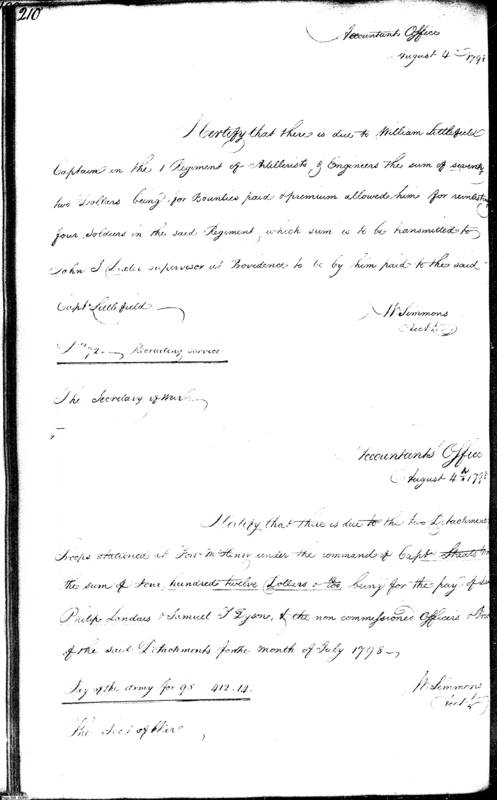 210
Accountants Office
August 4th 1798
I Certify that there is due to William Littlefield
Captain in the 1 Regiment of Artillerists & Engineers the sum of seventy
two Dollars being for Bounties paid & premium allowed him for reinlisting
four Soldiers in the said Regiment, which sum is to be transmitted to
John S supervisor at Providence to be by him paid to the said
Capt Littlefield
Wm Simmons
Acct
72 Recruiting service
The Secretary of War
Accountants Office
August 4th 1798
I Certify that there is due to the two Detachments
Troops stationed at Fort McHenry under the command of Capt Staats
the sum of four hundred twelve Dollars & being for the pay of
Philip Landais & Samuel T Dyson, & the non commissioned Officers &
of the said Detachments for the month of July 1798
Pay of the army for 98 412.14
W Simmons
Acct
The Sec of War